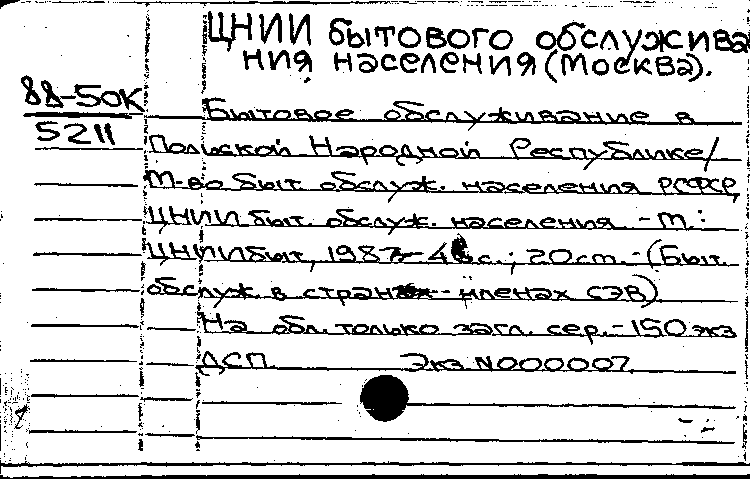 ЦНИИ бытового обслужива
ния населения (Москва).
88-50К
5211
Бытовое обслуживание в
Польской Народной Республике/
М-во быт. обслуж. населения РСФСР,
ЦНИИ быт. обслуж. населения. - М.:
ЦНИИбыт, 1987. - 46с.; 20см. - (Быт.
обслуж. в странах - членах СЭВ)
На обл. только загл. сер. - 150 экз
ДСП. Экз N000007.